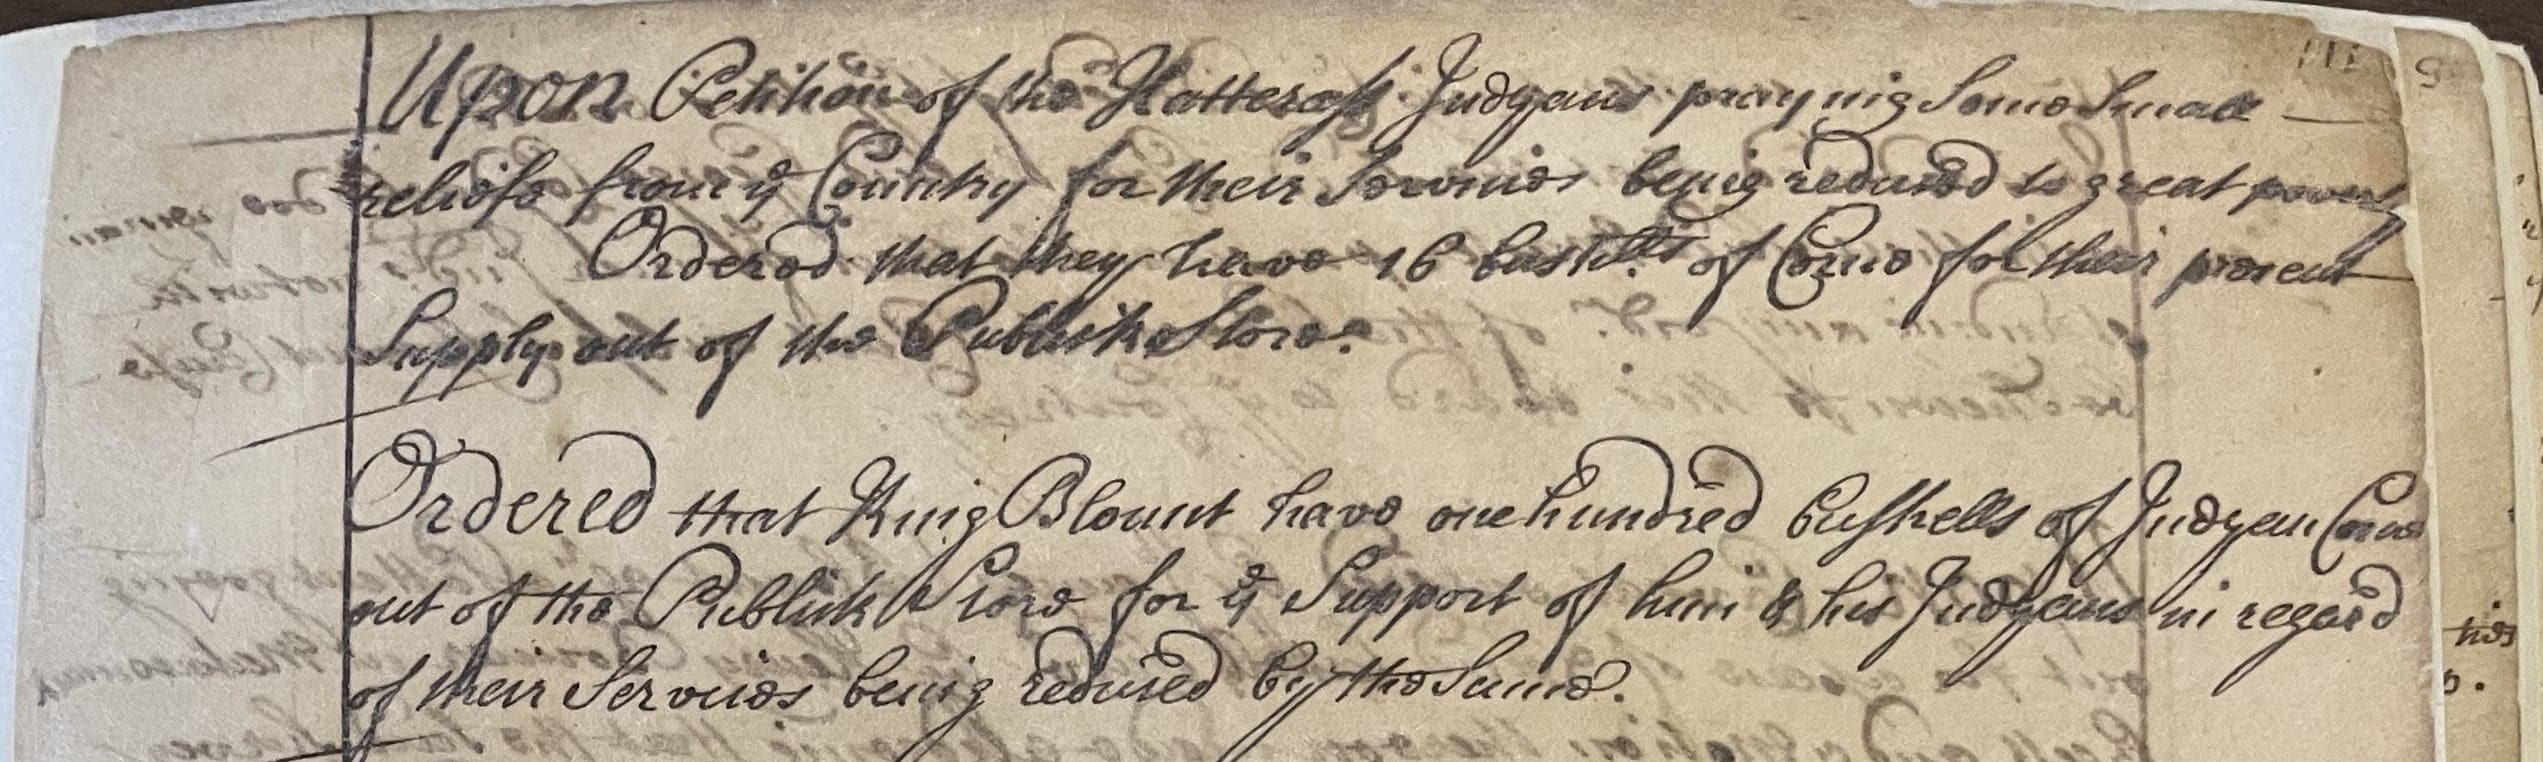 Upon Petition of the Hatterass Indyans praying Some Small
reliefe from ye Country for their Services being reduced to great poverty
Ordered that they have 16 bushlls of Corne for their present
Supply out of the Publick Store.
Ordered that King Blount have one hundred bushells of Indyan Corne
out of the Publick Store for ye Support of him & his Indyans in regard
of their Services being reduced by the Same.